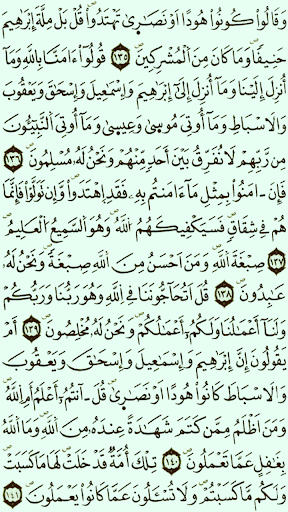 وَقَالُواْ كُونُواْ هُودًا اَوْ نَصَٰرَىٰ تَهْتَدُواْ قُلْ بَلْ مِلَّةَ إِبْرَٰهِيمَ
حَنِيفًا وَمَا كَانَ مِنَ ٱلْمُشْرِكِينَ ١٣٥ قُولُوٓاْ ءَامَنَّا بِٱللَّهِ وَمَآ
أُنزِلَ إِلَيْنَا وَمَآ أُنزِلَ إِلَىٰٓ إِبْرَٰهِيمَ وَإِسْمَٰعِيلَ وَإِسْحَٰقَ وَيَعْقُوبَ
وَالَاسْبَاطِ وَمَآ أُوتِيَ مُوسَىٰ وَعِيسَىٰ وَمَآ أُوتِيَ ٱلنَّبِيٓـُٔونَ
مِن رَّبِّهِمْ لَا نُفَرِّقُ بَيْنَ أَحَدٍ مِّنْهُمْ وَنَحْنُ لَهُۥ مُسْلِمُونَ ١٣٦
فَإِنَ ـ امَنُواْ بِمِثْلِ مَآ ءَامَنتُم بِهِۦ فَقَدِ اِهْتَدَواْ وَّإِن تَوَلَّوْاْ فَإِنَّمَا
هُمْ فِي شِقَاقٍ فَسَيَكْفِيكَهُمُ ٱللَّهُ وَهُوَ ٱلسَّمِيعُ ٱلْعَلِيمُ
١٣٧ صِبْغَةَ ٱللَّهِ وَمَنَ اَحْسَنُ مِنَ ٱللَّهِ صِبْغَةً وَنَحْنُ لَهُۥ
عَٰبِدُونَ ١٣٨ قُلَ اَتُحَآجُّونَنَا فِي ٱللَّهِ وَهُوَ رَبُّنَا وَرَبُّكُمْ
وَلَنَآ أَعْمَٰلُنَا وَلَكُمُۥٓ أَعْمَٰلُكُمْ وَنَحْنُ لَهُۥ مُخْلِصُونَ ١٣٩ أَمْ
يَقُولُونَ إِنَّ إِبْرَٰهِيمَ وَإِسْمَٰعِيلَ وَإِسْحَٰقَ وَيَعْقُوبَ
وَالَاسْبَاطَ كَانُواْ هُودًا اَوْ نَصَٰرَىٰ قُلَ ـ آنتُمُۥٓ أَعْلَمُ أَمِ ٱللَّهُ
وَمَنَ اَظْلَمُ مِمَّن كَتَمَ شَهَٰدَةً عِندَهُۥ مِنَ ٱللَّهِ وَمَا ٱللَّهُ
بِغَٰفِلٍ عَمَّا تَعْمَلُونَ ١٤٠ تِلْكَ أُمَّةٌ قَدْ خَلَتْ لَهَا مَا كَسَبَتْ
وَلَكُم مَّا كَسَبْتُمْ وَلَا تُسْـَٔلُونَ عَمَّا كَانُواْ يَعْمَلُونَ ١٤١